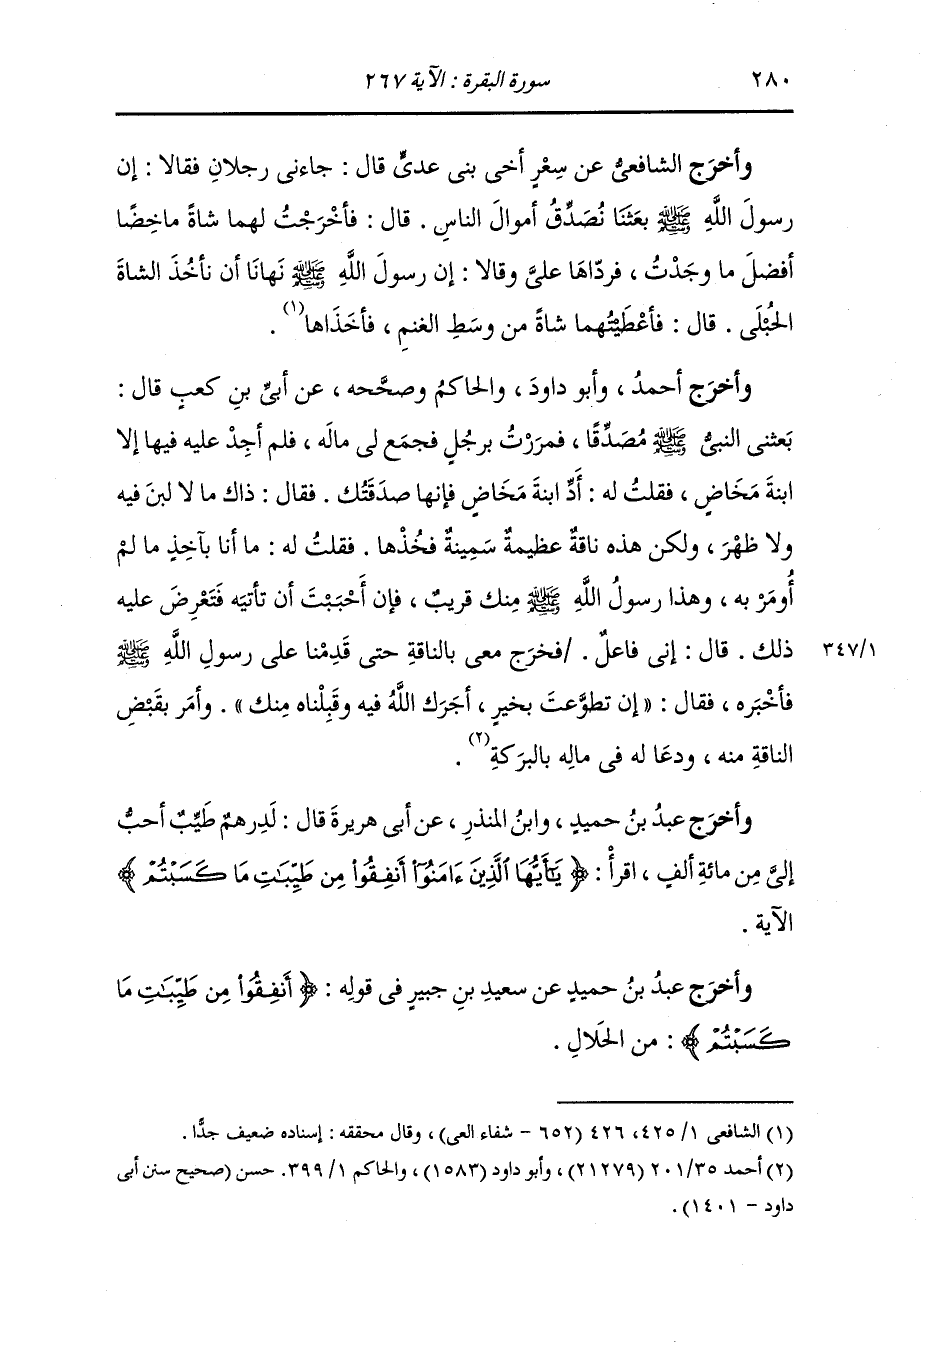 ٢٨٠
سورة البقرة : الآية ٢٦٧
وأخرَج الشافعىُّ عن سِعْرٍ أخى بنى عدىٍّ قال : جاءنى رجلانِ فقالا : إن
رسولَ اللَّهِ ﷺ بعَثَنَا نُصَدِّقُ أموالَ الناسِ . قال : فأخْرَجْتُ لهما شاةً ماخِضًا
أفضلَ ما وجَدْتُ ، فردَّاهَا علىَّ وقالا : إن رسولَ اللَّهِ ﷺ نَهانَا أن نأخُذَ الشاةَ
الحُبْلَى . قال : فأعْطَيْتُهما شاةً من وسَطِ الغنمِ ، فأخَذَاها(١) .
وأخرَج أحمدُ ، وأبو داودَ ، والحاكمُ وصحَّحه ، عن أبىِّ بنِ كعبٍ قال :
بَعثنى النبىُّ ﷺ مُصَدِّقًا ، فمرَرْتُ برجُلٍ فجمَع لى مالَه ، فلم أجِدْ عليه فيها إلا
ابنةَ مَخَاضٍ ، فقلتُ له : أَدِّ ابنةَ مَخَاضٍ فإنها صدَقَتُك . فقال : ذاك ما لا لبنَ فيه
ولا ظهْرَ ، ولكن هذه ناقةٌ عظيمةٌ سَمِينةٌ فخُذْها . فقلتُ له : ما أنا بآخِذٍ ما لمْ
أُومَرْ به ، وهذا رسولُ اللَّهِ ﷺ مِنك قريبٌ ، فإن أَحْبَبْتَ أن تأتيَه فَتَعْرِضَ عليه
ذلك . قال : إنى فاعلٌ . /فخرَج معى بالناقةِ حتى قَدِمْنا على رسولِ اللَّهِ ﷺ
٣٤٧/١
فأخْبَره ، فقال : « إن تطوَّعتَ بخيرٍ ، أجَرَك اللَّهُ فيه وقَبِلْناه مِنك » . وأمَر بقَبْضِ
الناقةِ منه ، ودعَا له فى مالِه بالبرَكةِ(٢) .
وأخرَج عبدُ بنُ حميدٍ ، وابنُ المنذرِ ، عن أبى هريرةَ قال : لَدِرهمٌ طَيِّبٌ أحبُّ
إلىَّ مِن مائةِ ألفٍ ، اقرأْ : ﴿ يَٰٓأَيُّهَا ٱلَّذِينَ ءَامَنُوٓا۟ أَنفِقُوا۟ مِن طَيِّبَٰتِ مَا كَسَبْتُمْ ﴾
الآية .
وأخرَج عبدُ بنُ حميدٍ عن سعيدِ بنِ جبيرٍ فى قولِه : ﴿ أَنفِقُوا۟ مِن طَيِّبَٰتِ مَا
كَسَبْتُمْ ﴾ : من الحَلالِ .
(١) الشافعى ١/ ٤٢٥، ٤٢٦ (٦٥٢ – شفاء العى) ، وقال محققه : إسناده ضعيف جدًّا .
(٢) أحمد ٢٠١/٣٥ (٢١٢٧٩) ، وأبو داود (١٥٨٣) ، والحاكم ١/ ٣٩٩. حسن (صحيح سنن أبى
داود – ١٤٠١) .